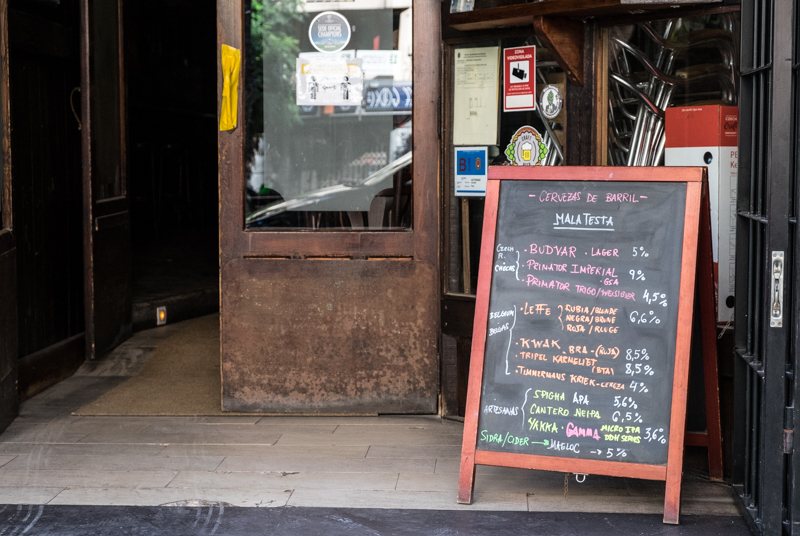 ZONA
VIDEOVIGILADA
CRAFT
- CERVEZAS DE BARRIL -
MALATESTA
CZECH
R.
CHECAS
· BUDVAR · LAGER 5%
· PRIMATOR IMPERIAL 9%
· PRIMATOR TRIGO/WEISSBIER 4,5%
BELGIUM
BELGAS
· LEFFE RUBIA/BLONDE
NEGRA/BRUNE 6,6%
ROJA / ROUGE
· KWAK BRA - (ROJA) 8,5%
· TRIPEL KARMELIET (BTA) 8,5%
· TIMMERMANS KRIEK-CEREZA 4%
ARTESANAS
SPIGHA APA 5,6%
CANTERO NEIPA 6,5%
YAKKA · GAMMA MICRO IPA
DDH SERIES 3,6%
SIDRA/CIDER → MAELOC → 5%